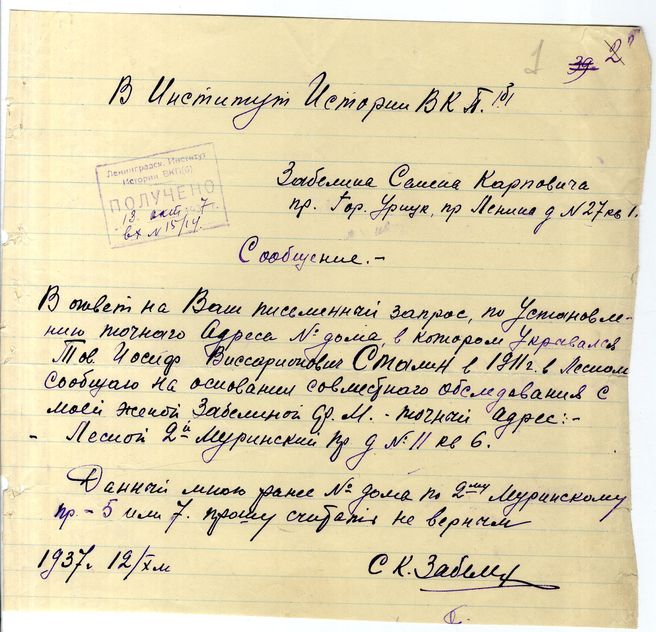 1 39 2
В Институт Истории ВКП.(б)
Ленинградск. Институт
Истории ВКП(б)
ПОЛУЧЕНО
13. окт. 7
вх N 15/14
Забелина Семена Карповича
пр. Гор. Урицк, пр Ленина д N 27 кв 1.
Сообщение.-
В ответ на Ваш письменный запрос, по установле-
нию точного Адреса № дома, в котором укрывался
Тов. Иосиф Виссарионович Сталин в 1911 г. в Лесном
сообщаю на основании совместного обследования с
моей женой Забелиной Ф. М. - точный адрес:-
- Лесной 2й Муринский пр д № 11 кв 6.
Данный мною ранее № дома по 2му Муринскому
пр - 5 или 7. прошу считать не верным
1937 г. 12/X м
С К. Забелин